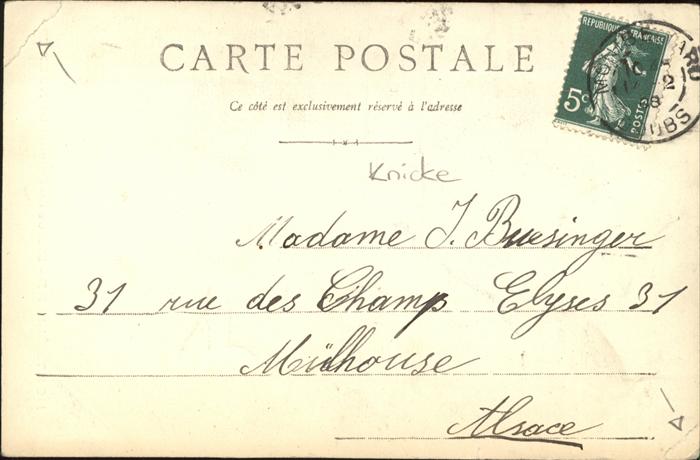 CARTE POSTALE
REPUBLIQUE FRANÇAISE
5c
POSTES
DOUBS
Ce côté est exclusivement réservé à l'adresse
Knicke
Madame J. Buesinger
31 rue des Champ Elyses 31
Mülhouse
Alsace